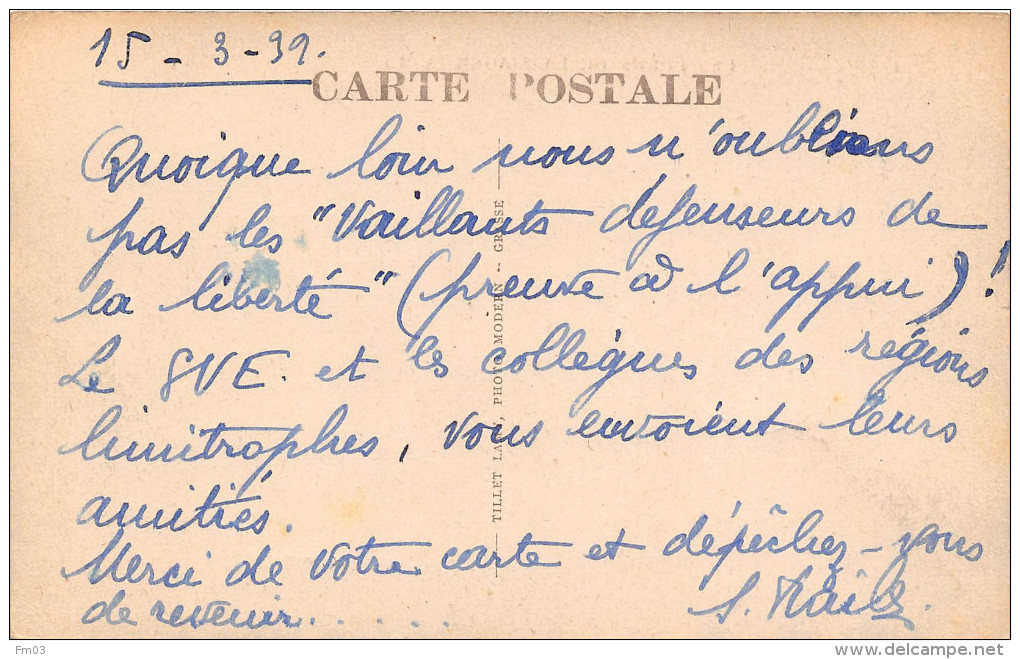 15 - 3 - 39.
CARTE POSTALE
Quoique loin nous n'oublions
pas les "Vaillants défenseurs de
la liberté" (preuve à l'appui)!
Le SVE. et les collègues des régions
limitrophes, vous envoient leurs
amitiés.
Merci de votre carte et dépêchez-vous
de revenir.....
TILLET LA , PHOTO MODERN -- GRASSE
Fm03
www.delcampe.net